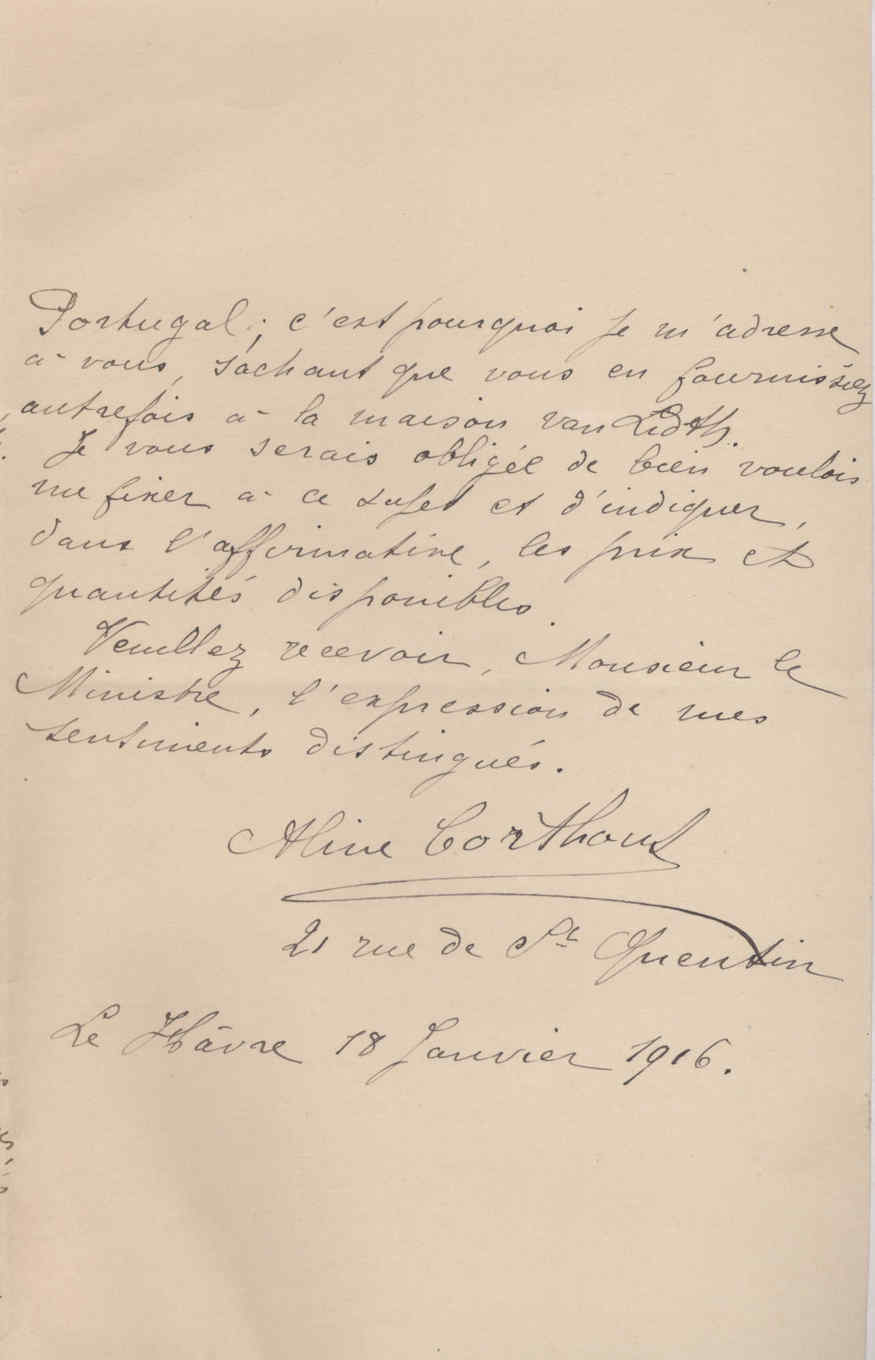 Portugal; c'est pourquoi je m'adresse
à vous, sachant que vous en fournissiez
autrefois à la maison van Lidth.
Je vous serais obligée de bien vouloir
me fixer à ce sujet et d'indiquer,
dans l'affirmative, les prix et
quantités disponibles.
Veuillez recevoir, Monsieur le
Ministre, l'expression de mes
sentiments distingués.
Aline Corthout
21 rue de St Quentin
Le Hâvre 18 Janvier 1916.